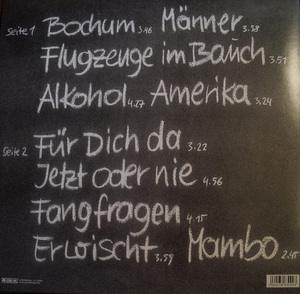 Seite 1 Bochum 3.46 Männer 3.58
Flugzeuge im Bauch 3.51
Alkohol 4.27 Amerika 3.24
Seite 2 Für Dich da 3.22
Jetzt oder nie 4.56
Fangfragen 4.15
Erwischt 3.59 Mambo 2.45